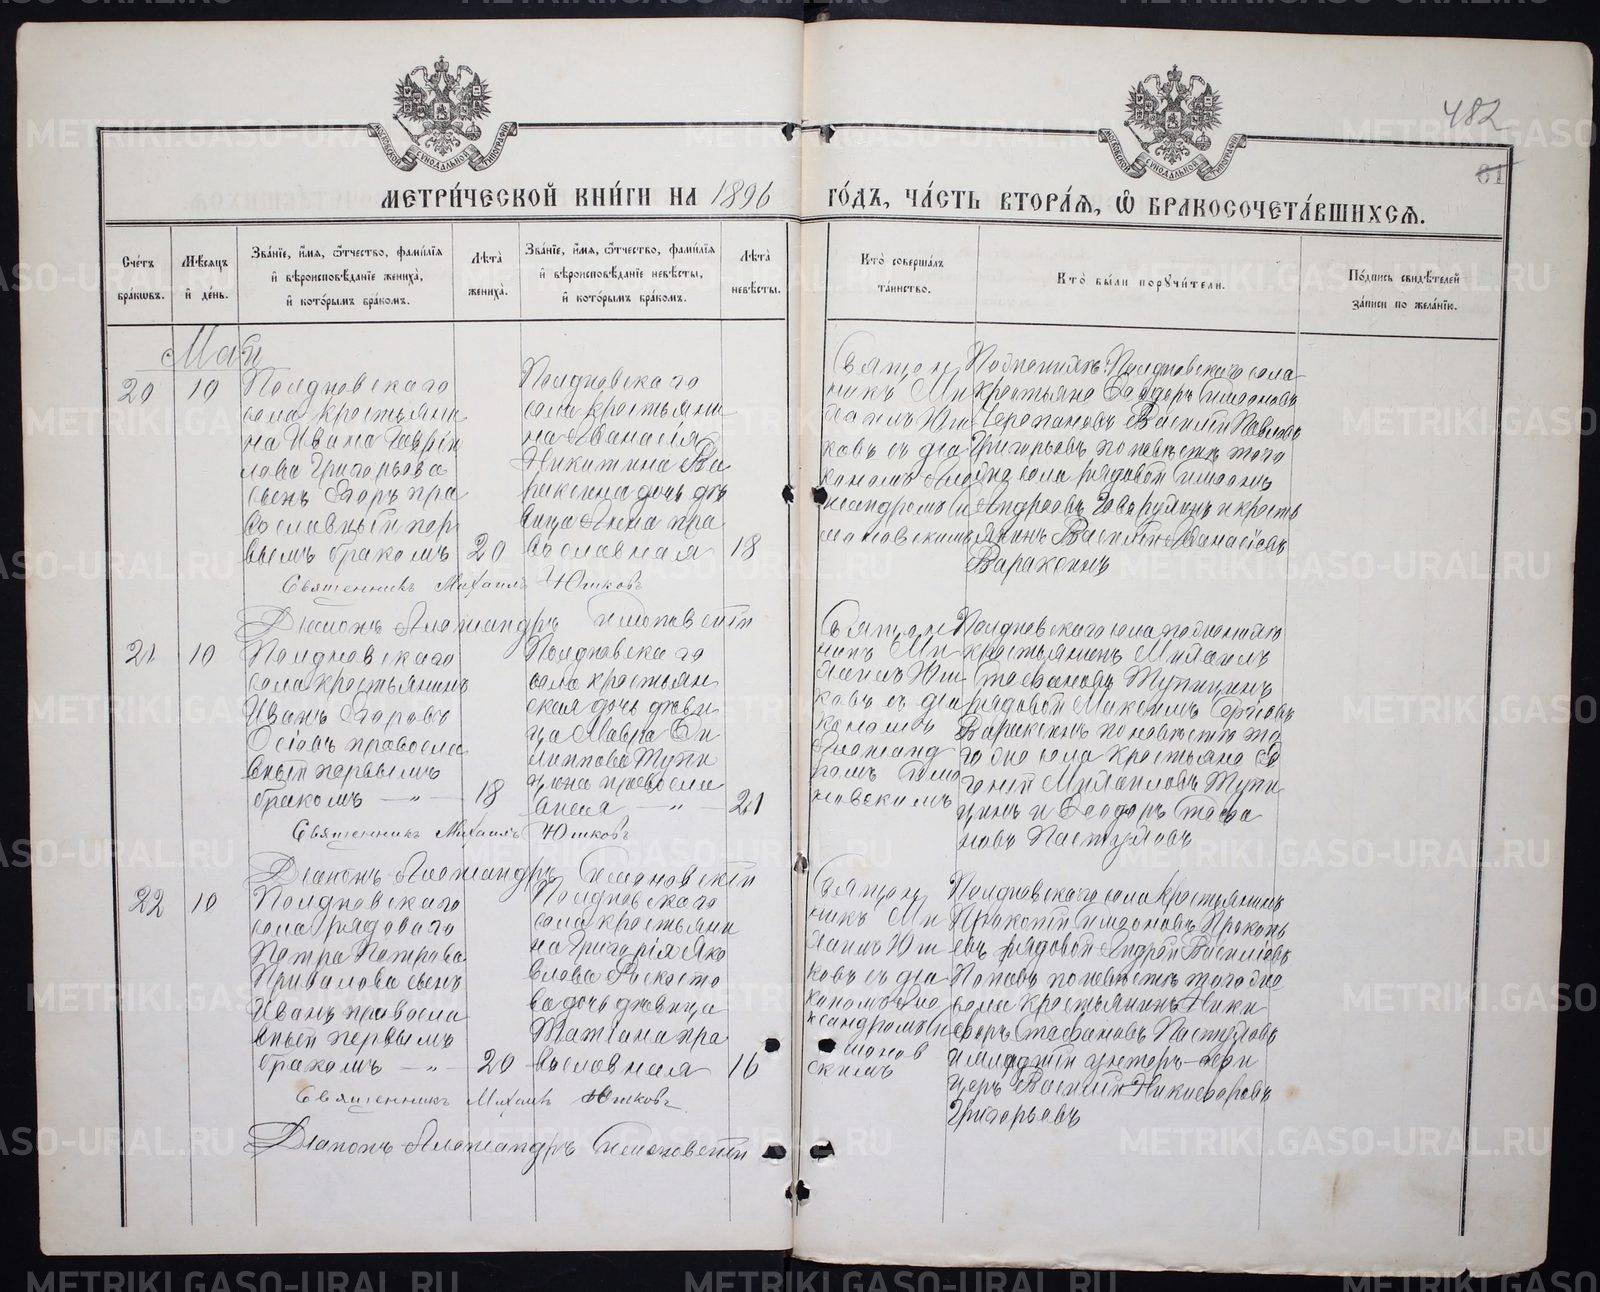 482
61
МЕТРИ́ЧЕСКОЙ КНИ́ГИ НА 1896 ГО́ДЪ, ЧА́СТЬ ВТОРА́Я, Ѽ БРАКОСОЧЕТА́ВШИХСЯ.
Сче́тъ бра́кѡвъ.
Мѣ́сяцъ и҆ де́нь.
Зва́нїе, и҆́мя, ѻ҆́тчество, фами́лїя
и҆ вѣроисповѣ́данїе жениха̀,
и҆ кото́рымъ бра́комъ.
Лѣта̀ жениха̀.
Зва́нїе, и҆́мя, ѻ҆́тчество, фами́лїя
и҆ вѣроисповѣ́данїе невѣ́сты,
и҆ кото́рымъ бра́комъ.
Лѣта̀ невѣ́сты.
Кто̀ соверша́лъ та́инство.
Кто̀ бы́ли порꙋчи́тели.
По́дпись свидѣ́телей за́писи по жела́нїю.
Май
20
10
Полдневскаго
села крестьяни
на Ивана Гаврiи
лова Григорьева
сынъ Егоръ пра
вославный пер
вымъ бракомъ
20
Полдневскаго
села крестьяни
на Аѳанасiя
Никитина Ва
ракина дочь дѣ
вица Анна пра
вославная
18
Священ
никъ Ми
хаилъ Юш
ковъ съ дiа
кономъ Але
ксандромъ Си
моновскимъ
Крестьяне Ѳеодоръ Симеоновъ
Черепановъ Василiй Павловъ
Григорьевъ по невѣстѣ того
села рядовой Симеонъ
Андреевъ и кресть
янинъ Василiй Аѳанасiевъ
Варакинъ
Священникъ Михаилъ Юшковъ
Дiаконъ Александръ Симоновскiй
21
10
Полдневскаго
села крестьянинъ
Иванъ Егоровъ
правосла
вный первымъ
бракомъ — „ —
18
Полдневскаго
села крестьян
ская дочь дѣви
ца Мавра Фи
липпова Тупи
цына правосла
вная — „
21
Священ
никъ Ми
хаилъ Юш
ковъ съ дiа
кономъ
Александ
ромъ Симо
новскимъ
Полдневскаго села по женихѣ
крестьянинъ Михаилъ
Стефановъ Тупицинъ
рядовой Максимъ Сергѣевъ
Варакинъ по невѣстѣ то
го же села крестьяне
Михаиловъ Тупи
цинъ и Ѳеодоръ Стефа
новъ Пастуховъ
Священникъ Михаилъ Юшковъ
Дiаконъ Александръ Симоновскiй
22
10
Полдневскаго
села рядоваго
Петра Петрова
Привалова сынъ
Иванъ правосла
вный первымъ
бракомъ — „ —
20
Полдневскаго
села крестьяни
на Григорiя Яко
влева
ва дочь дѣвица
Татiана пра
вославная
16
Священ
никъ Ми
хаилъ Юш
ковъ съ дiа
кономъ Але
ксандромъ Си
монов
скимъ
Полдневскаго села крестьянинъ
Прокопiй Симеоновъ Прокопь
евъ рядовой Андрей Василiевъ
Поповъ по невѣстѣ того же
села крестьянинъ Ники
форъ Стефановъ Пастуховъ
и младшiй унтеръ-офи
церъ Василiй Никифоровъ
Григорьевъ
Священникъ Михаилъ Юшковъ
Дiаконъ Александръ Симоновскiй
METRIKI.GASO-URAL.RU